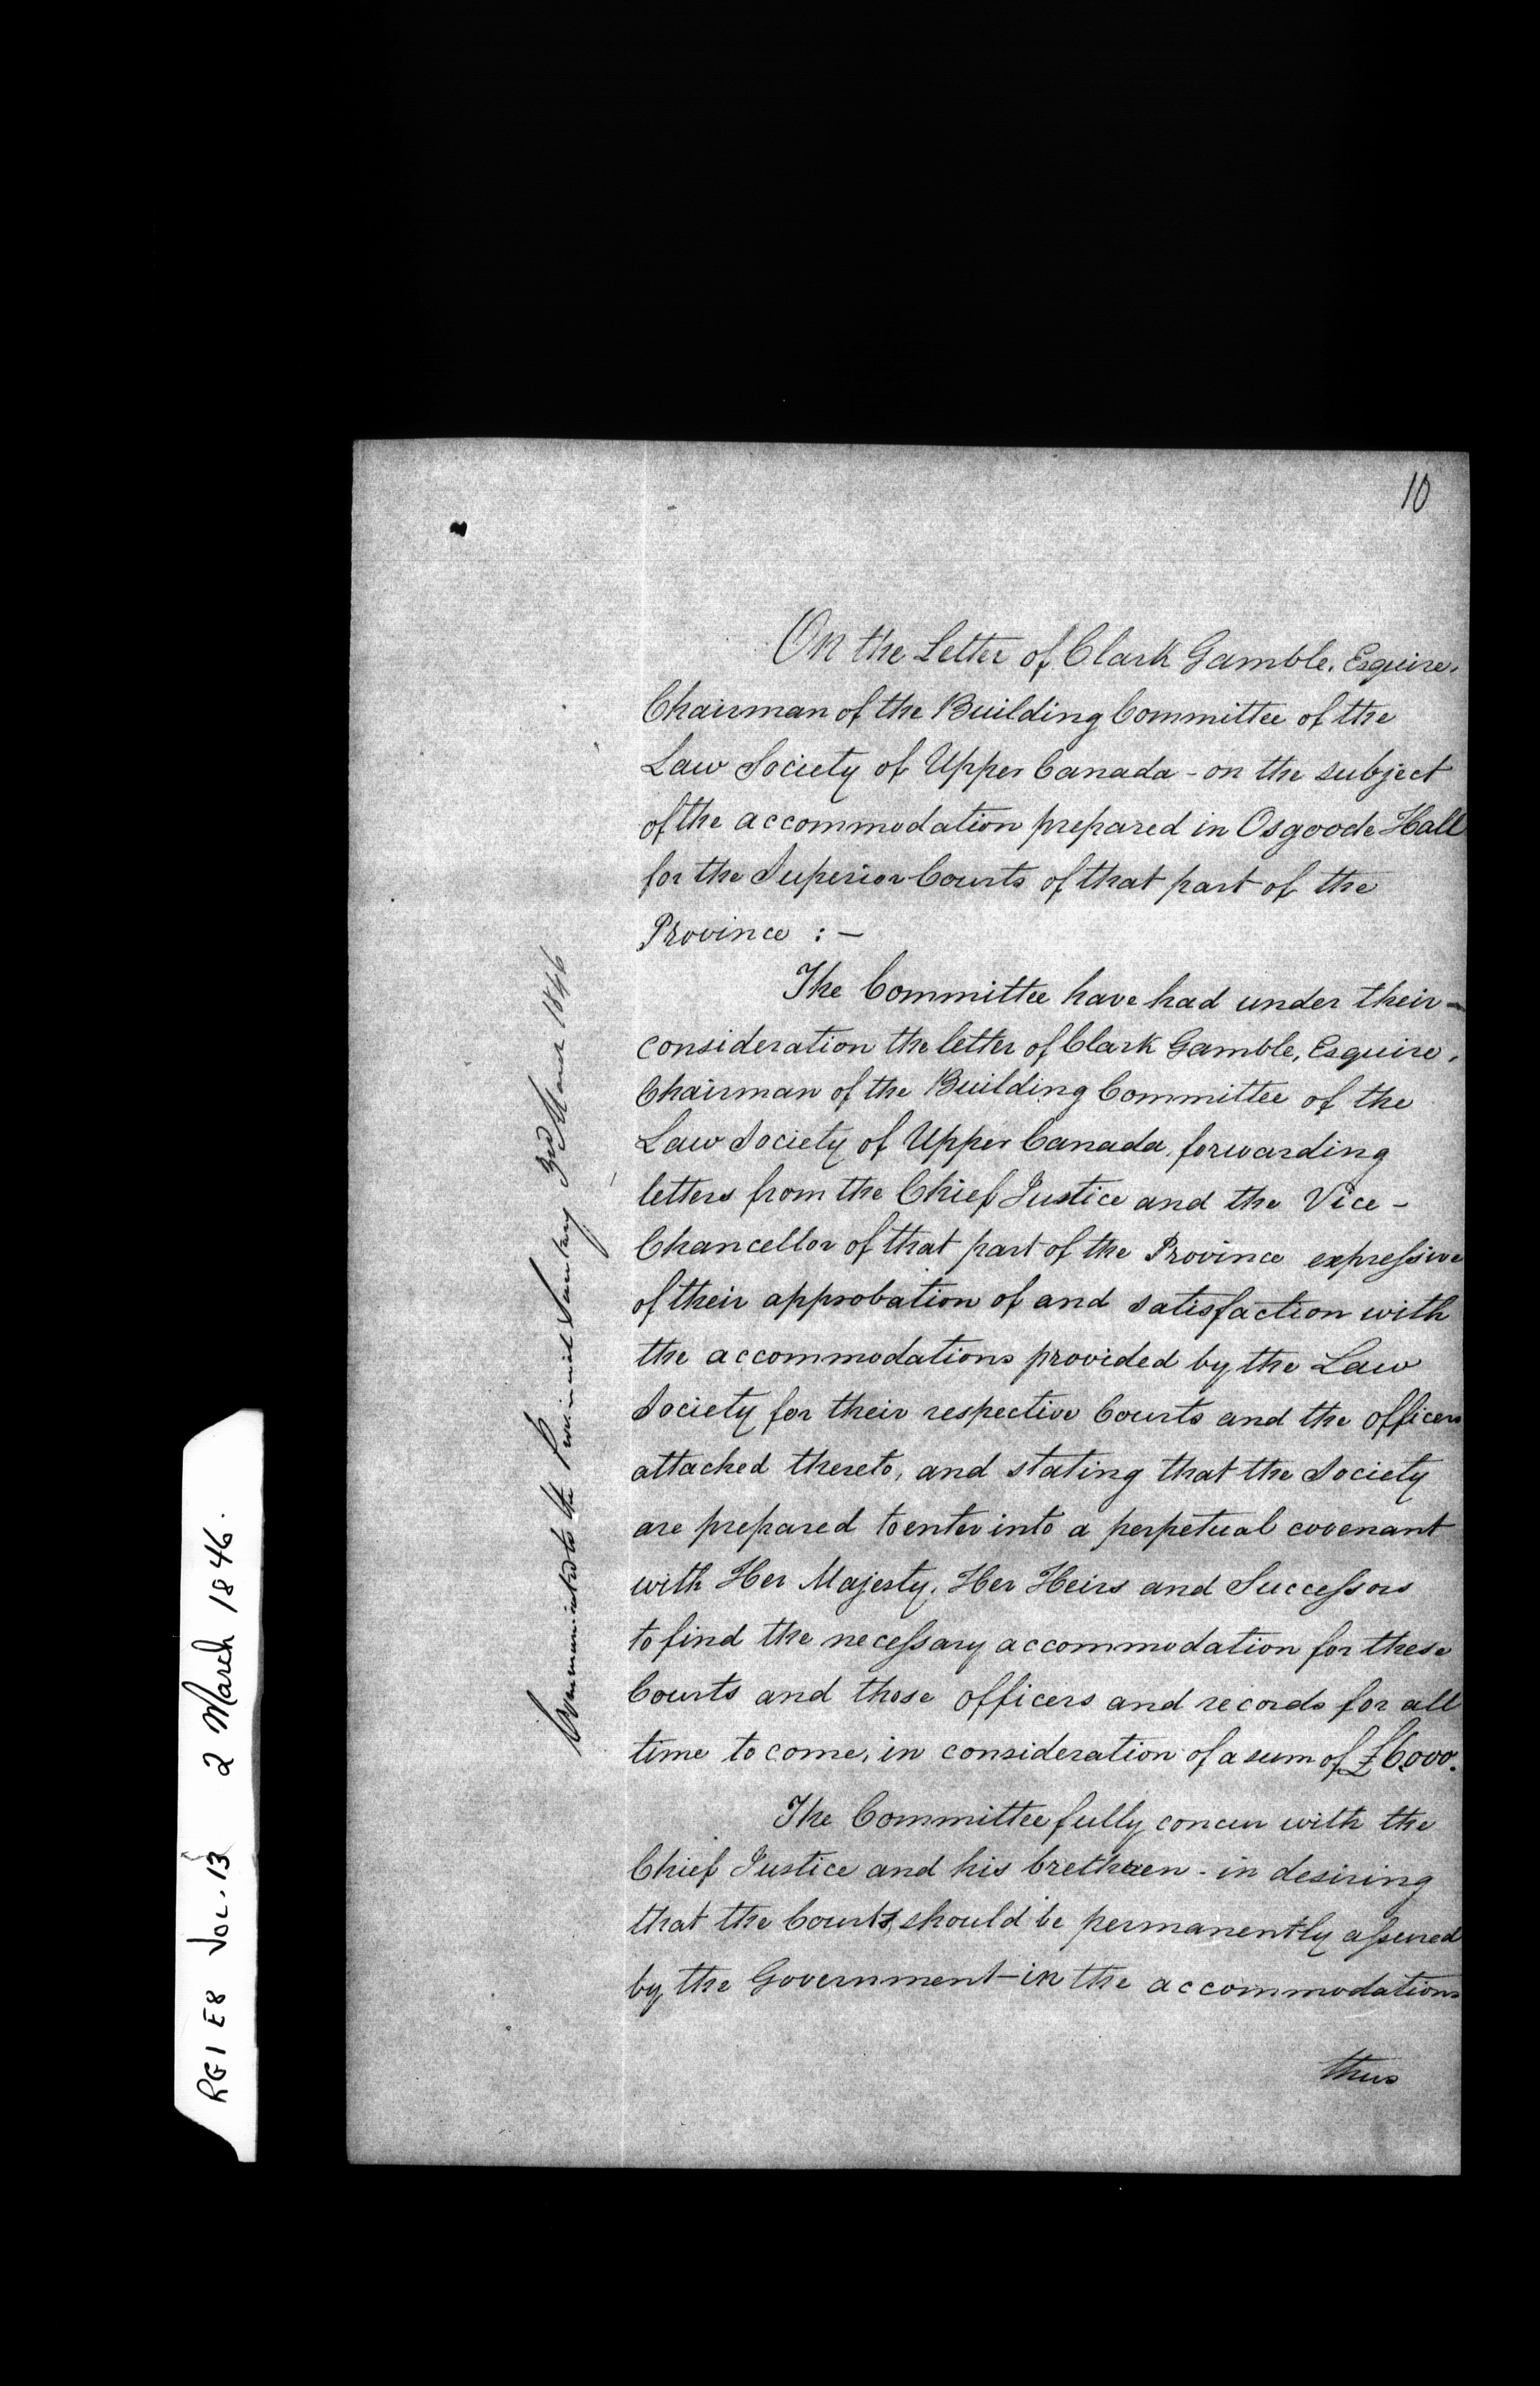 10
On the Letter of Clark Gamble, Esquire,
Chairman of the Building Committee of the
Law Society of Upper Canada - on the subject
of the accommodation prepared in Osgoode Hall
for the Superior Courts of that part of the
Province : —
The Committee have had under their —
consideration the letter of Clark Gamble, Esquire,
Chairman of the Building Committee of the
Law Society of Upper Canada, forwarding
letters from the Chief Justice and the Vice -
Chancellor of that part of the Province expressive
of their approbation of and satisfaction with
the accommodations provided by the Law
Society for their respective Courts and the officers
attached thereto, and stating that the Society
are prepared to enter into a perpetual covenant
with Her Majesty, Her Heirs and Successors
to find the necessary accommodation for these
Courts and those officers and records for all
time to come, in consideration of a sum of £6000.
The Committee fully concur with the
Chief Justice and his brethren - in desiring
that the Courts, should be permanently assured
by the Government - in the accommodations
thus
Communicated to the Provincial Secretary 3rd March 1846
RG1 E8 Vol. 13 2 March 1846.